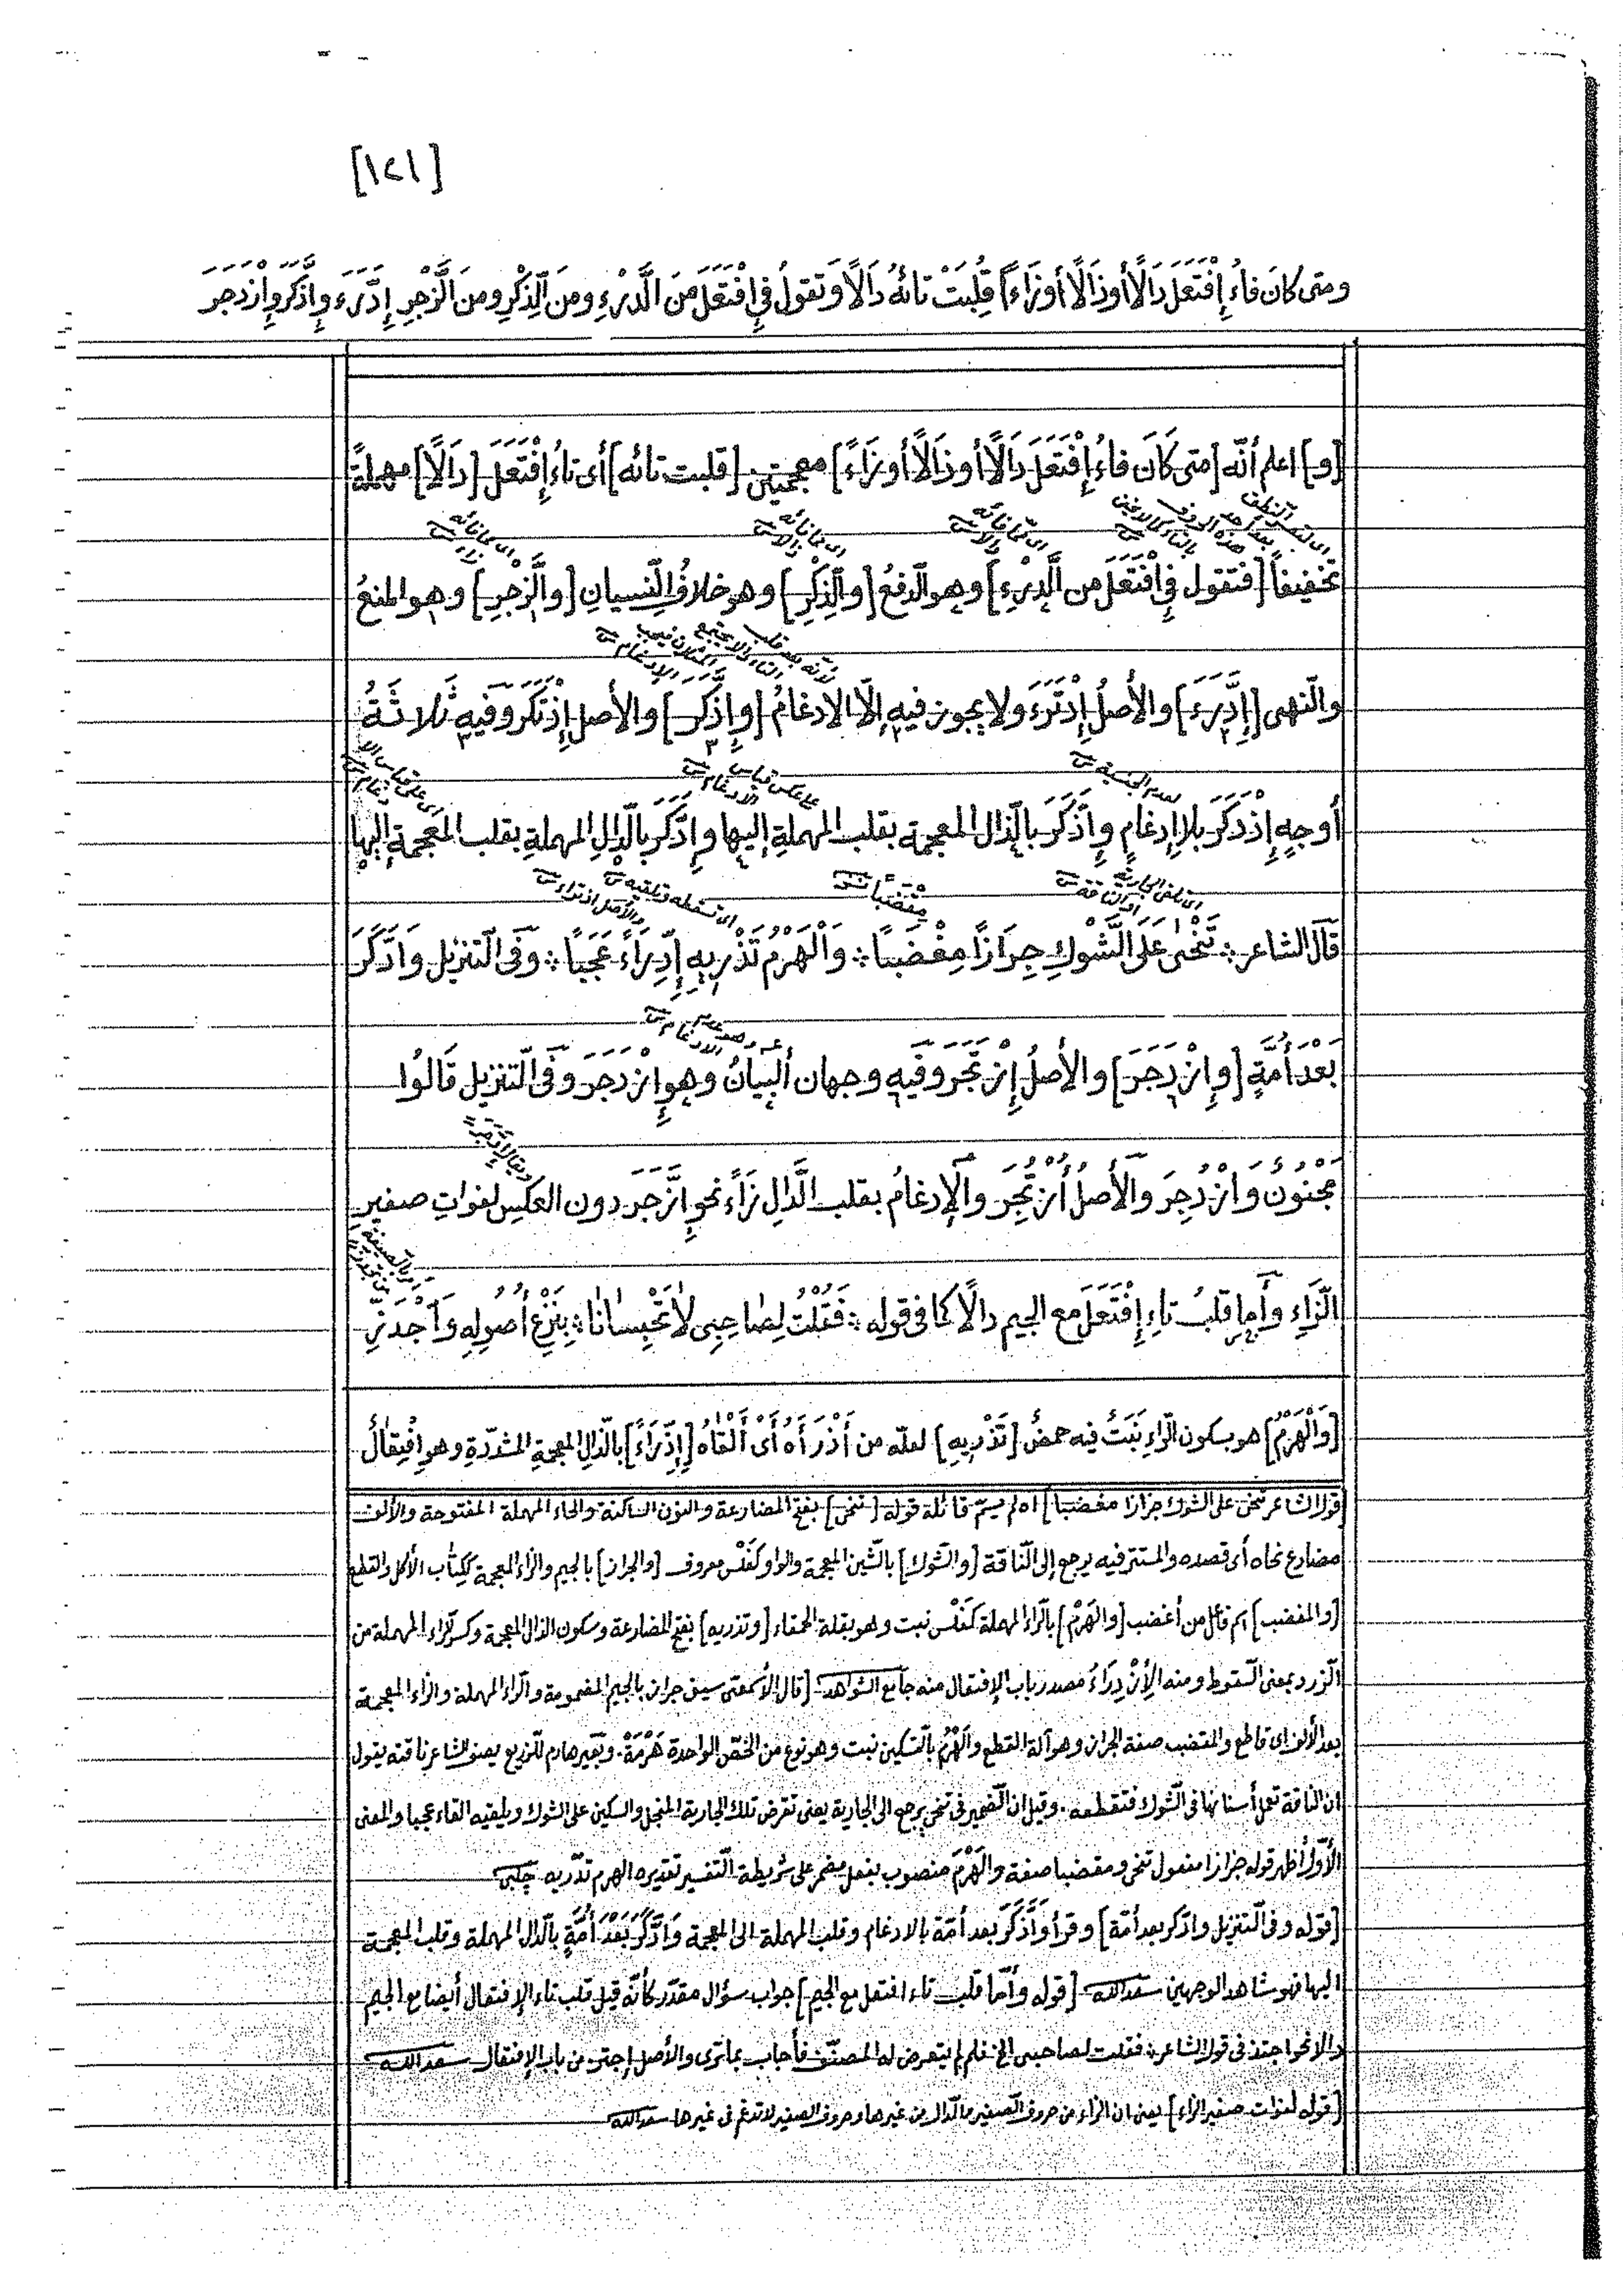 [١٢١]
ومتى كانَ فاءُ إِفْتَعَلَ دَالًا أَوذَالًا أَوزَاءً قُلِبَتْ تائُهُ دَالًا وَتقولُ فِي إِفْتَعَلَ مِنَ الدَّرْءِ ومنَ الذِّكْرِ ومن الزَّجْرِ إِدَّرَءَ وإِذَّكَرَ وإِزْدَجَرَ
[و] اعلم أنّه [متى كَانَ فاءُ إِفْتَعَلَ دَالًا أوذَالًا أوزَاءً] معجمتين [قلبت تائه] أى تاءُ إِفْتَعَلَ [دَالًا] مهملةً
تخفيفاً [فتقول فِي افْتَعَلَ من الدَّرْءِ] وهو الدفعُ [والذِّكْرِ] وهو خلافُ النِّسيانِ [والزَّجْرِ] وهو المنعُ
لأنّه بعد قلب التاء دالا يجتمع المثلان فيجب الإدغام
والنّهى [إِدَّرَءَ] والأصلُ إِدْتَرَءَ ولا يجوز فيهِ إلّا الادغامُ [وإِذَّكَرَ] والأصل إِذْتَكَرَ وَفيهِ ثَلاثَةُ
على عكس قياس الادغام
أوجهٍ إِذْدَكَرَ بلا إدغامٍ وإِذَّكَرَ بالذّال المعجمة بقلب المهملةِ إليها وإِدَّكَرَ بالدّالِ المهملةِ بقلب المعجمةِ إليها
مِقْضَبًا
اى تسقطه وتلقيه
قالَ الشاعر: تَنْحٰى عَلَى الشَّوْكِ جِرَازًا مِقْضَبًا : وَالْهَرْمُ تَذْرِيهِ إِذِّرَاءً عَجَبًا : وَفِى التنزيلِ وَادَّكَرَ
بَعْدَ أُمَّةٍ [وإِزْدَجَرَ] والأصلُ إِزْتَجَرَ وَفيهِ وجهان ألبيانُ وهو إِزْدَجَرَ وفى التّنزيل قَالُوا
مَجْنُونٌ وَازْدُجِرَ والأصلُ أُزْتُجِرَ والإدغامُ بقلب الدَّالِ زَاءً نحو إِزَّجَرَ دون العكسِ لفواتِ صفيرِ
الزّاءِ وأما قلبُ تاءِ إِفْتَعَلَ مع الجيم دالًا كما فى قوله : فَقُلْتُ لِصَاحِبِى لاٰ تَحْبِسَانَا : بِنَزْعِ أُصُولِهِ وَاجْدَزَّ
[وَالْهَرْمُ] هو بسكون الرّاءِ نَبَتٌ فيه حمضٌ [تَذْرِيهِ] لعلّه من أَذْرَأَهُ أَىْ أَلْقَاهُ [إِذِّرَاءً] بالذّالِ المعجمةِ المشدّدةِ وهو افْتِعَالٌ
[قول الشاعر تنحى على الشوك جرازا مقضبا] اه لم يسمّ قائله قوله [تنحى] بفتح المضارعة والنون الساكنة والحاء المهملة المفتوحة والألف
مضارع نحاه أى قصده والمستتر فيه يرجع إلى النّاقة [والشّوك] بالشّين المعجمة والواو كفَلْس معروف [والجراز] بالجيم والزاء المعجمة ككِتٰاب الأكل والقطع
[والمقضب] اسم فاعل من أغضب [والهَرْم] بالرّاء المهملة كفَلْس نبت وهو بقلة الحمقاء [وتذريه] بفتح المضارعة وسكون الذال المعجمة وكسر الرّاء المهملة من
الزرد بمعنى السّقوط ومنه الإزْدِرَاءُ مصدر باب الإفتعال منه جامع الشواهد [قال الأصمعى سيف جراز بالجيم المضمومة والرّاء المهملة والزاء المعجمة
بعد الألف اى قاطع والمقضب صفة الجراز وهو آلة القطع والهَرْمُ بالتسكين نبت وهو نوع من الحمّض الواحدة هَرْمَةٌ. يصف الشاعر ناقته يقول
ان الناقة تعمل أسنانها فى الشّوك فتقطعه. وقيل إن الضمير فى تنحى يرجع الى الجارية يعنى تقرض تلك الجارية المنجل والسكين على الشوك ويلقيه القاء عجبا والمعنى
الأوّل أظهر قوله جرازا مفعول تنحى ومقضبا صفة والهَرْمَ منصوب بفعل مضمر على شريطة التّفسير تقديره الهرم تذريه چلبى
[قوله وفى التنزيل وادّكر بعد أمّة] وقرأ وَاذَّكَرَ بعد أمّة بالادغام وقلب المهملة الى المعجمة وَادَّكَرَ بَعْدَ أُمَّةٍ بالدّال المهملة وقلب المعجمة
اليها فهو شاهد الوجهين سعدالله [قوله وأمّا قلب تاء افتعل مع الجيم] جواب سؤال مقدّر كأنّه قيل قلب تاء الإفتعال أيضا مع الجيم
دالا نحو اجتذ فى قول الشاعر فقلت لصاحبى الخ فلم لم يتعرض له المصنّف فأجاب بما ترى والأصل إجتز من باب الإفتعال سعدالله
[قوله لفوات صفير الزاء] يعنى ان الزاء من حروف الصّفير والدّال من غيرها وحروف الصفير لا تدغم فى غيرها سعدالله